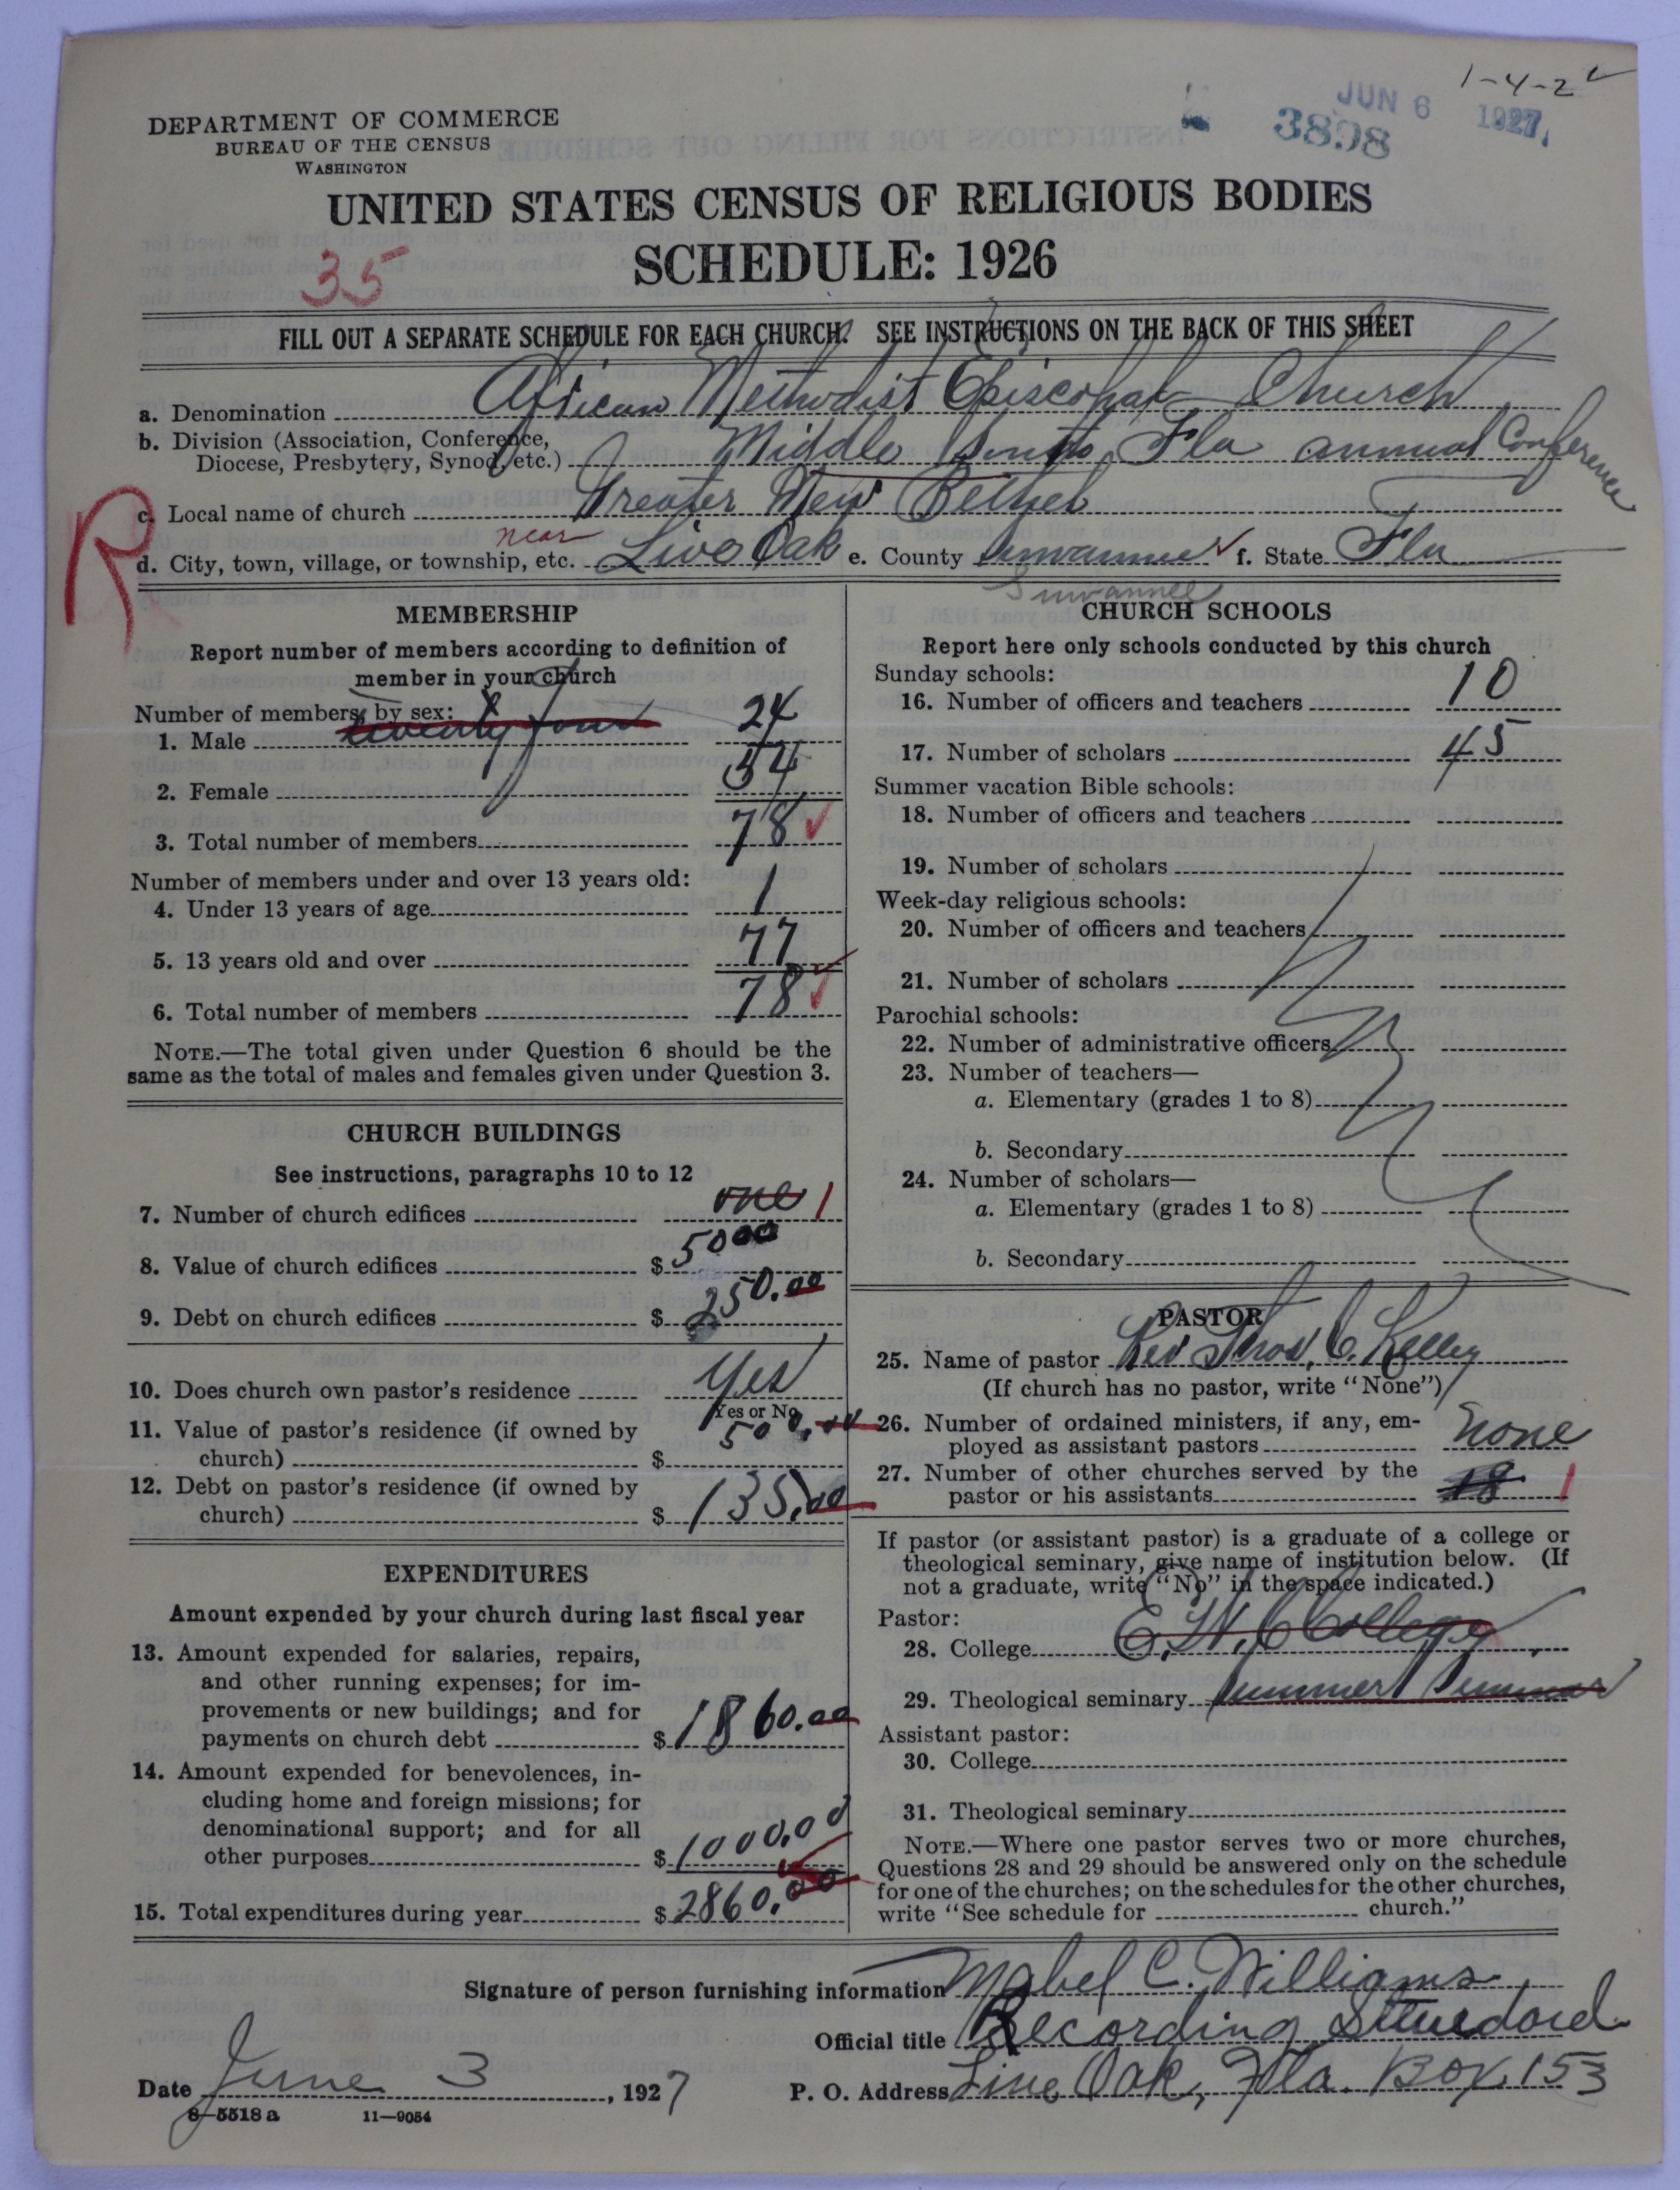 1-4-2
JUN 6 1927
3898
DEPARTMENT OF COMMERCE
BUREAU OF THE CENSUS
WASHINGTON
UNITED STATES CENSUS OF RELIGIOUS BODIES
SCHEDULE: 1926
35
FILL OUT A SEPARATE SCHEDULE FOR EACH CHURCH. SEE INSTRUCTIONS ON THE BACK OF THIS SHEET
a. Denomination African Methodist Episcopal Church
b. Division (Association, Conference,
Diocese, Presbytery, Synod, etc.) Middle South Fla annual Conference
R
c. Local name of church Greater New Bethel
d. City, town, village, or township, etc. near Live Oak e. County Suwannee f. State Fla
Suwannee
MEMBERSHIP
Report number of members according to definition of
member in your church
Number of members by sex:
1. Male twenty four 24
2. Female 54
3. Total number of members 78
Number of members under and over 13 years old:
4. Under 13 years of age 1
5. 13 years old and over 77
6. Total number of members 78
NOTE.—The total given under Question 6 should be the
same as the total of males and females given under Question 3.
CHURCH BUILDINGS
See instructions, paragraphs 10 to 12
7. Number of church edifices one 1
8. Value of church edifices $ 5000
9. Debt on church edifices $ 250.00
10. Does church own pastor's residence Yes
Yes or No
11. Value of pastor's residence (if owned by
church) $ 500.00
12. Debt on pastor's residence (if owned by
church) $ 135.00
EXPENDITURES
Amount expended by your church during last fiscal year
13. Amount expended for salaries, repairs,
and other running expenses; for im-
provements or new buildings; and for
payments on church debt $ 1860.00
14. Amount expended for benevolences, in-
cluding home and foreign missions; for
denominational support; and for all
other purposes $ 1000.00
15. Total expenditures during year $ 2860.00
CHURCH SCHOOLS
Report here only schools conducted by this church
Sunday schools:
16. Number of officers and teachers 10
17. Number of scholars 45
Summer vacation Bible schools:
18. Number of officers and teachers
19. Number of scholars
Week-day religious schools:
20. Number of officers and teachers
21. Number of scholars
Parochial schools:
22. Number of administrative officers
23. Number of teachers—
a. Elementary (grades 1 to 8)
b. Secondary
24. Number of scholars—
a. Elementary (grades 1 to 8)
b. Secondary
PASTOR
25. Name of pastor Rev Thos, C. Kelley
(If church has no pastor, write "None")
26. Number of ordained ministers, if any, em-
ployed as assistant pastors none
27. Number of other churches served by the
pastor or his assistants 18 1
If pastor (or assistant pastor) is a graduate of a college or
theological seminary, give name of institution below. (If
not a graduate, write "No" in the space indicated.)
Pastor:
28. College E. W. C College
29. Theological seminary Summer
Assistant pastor:
30. College
31. Theological seminary
NOTE.—Where one pastor serves two or more churches,
Questions 28 and 29 should be answered only on the schedule
for one of the churches; on the schedules for the other churches,
write "See schedule for church."
Signature of person furnishing information Mabel C. Williams
Official title Recording
Date June 3, 1927 P. O. Address Live Oak, Fla. Box 153
8—5518 a 11—9054